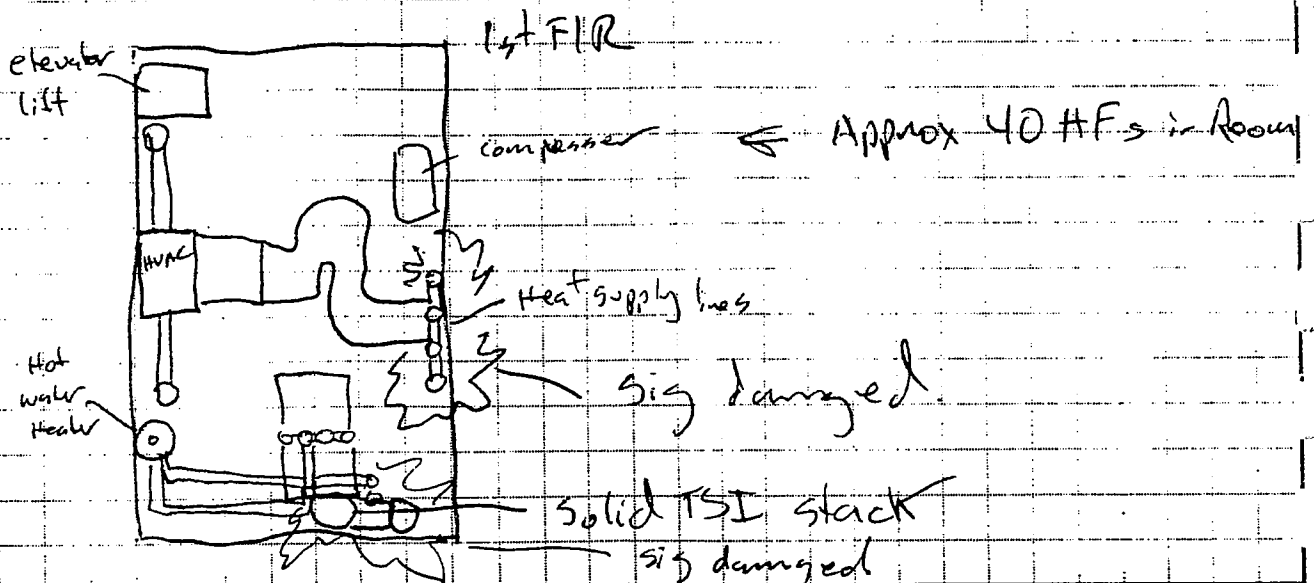 1st FlR
elevator
lift
compresser
← Approx 40 HFs in Room
HVAC
Heat supply lines
Hot
water
Heater
sig damaged.
Solid TSI stack
sig damaged